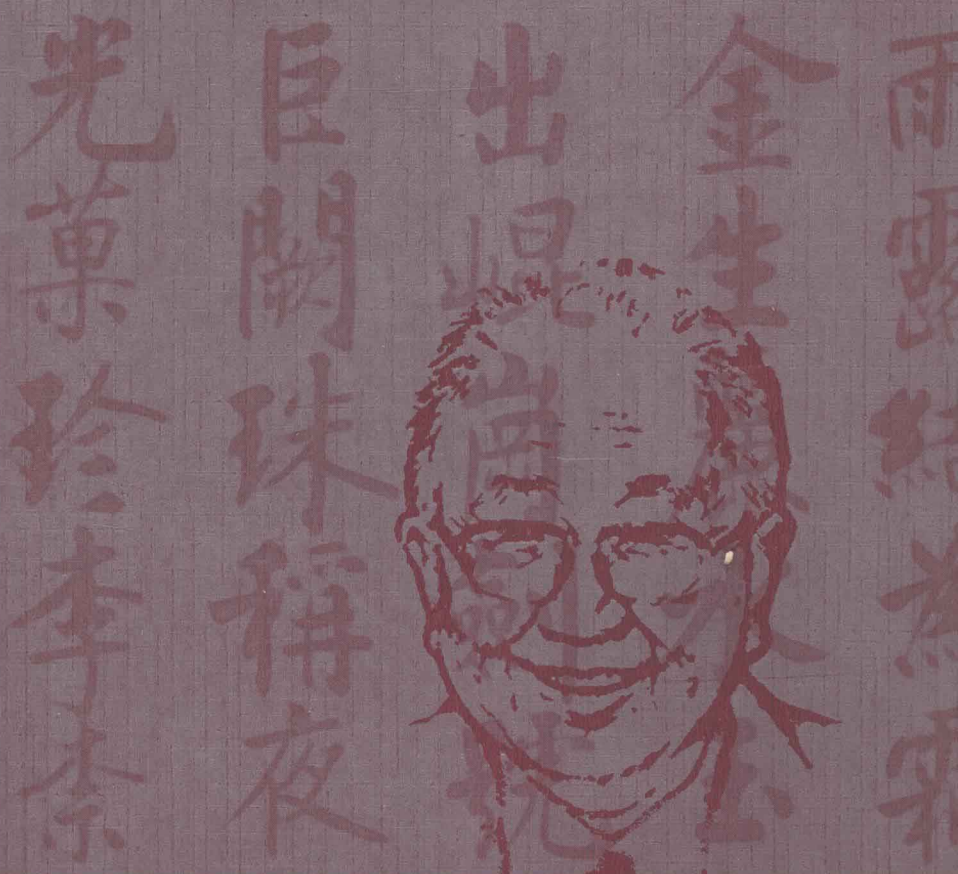 雨露結為霜
金生麗水玉
出崐崗劍號
巨闕珠稱夜
光菓珍李柰